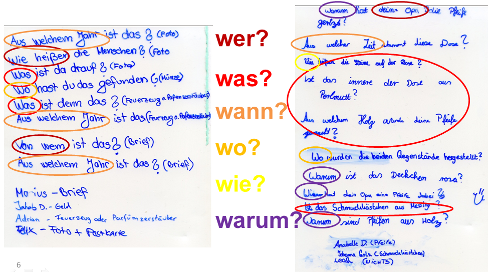 Aus welchem Jahr ist das? (Foto)
Wie heißen die Menschen? (Foto
Was ist da drauf? (Foto)
Wo hast du das gefunden? (Münze)
Was ist denn das? (Feuerzeug o.
Aus welchem Jahr ist das
Von wem ist das? (Brief)
Aus welchem Jahr ist das? (Brief)
Marius - Brief
Jakob D. - Geld
Adrian - Feuerzeug oder Parfümzerstäuber
Felix - Foto + Postkarte
6
wer?
was?
wann?
wo?
wie?
warum?
Warum hat deiner Opa die Pfeife
Aus welcher Zeit stammt diese Dose?
Wie die auf der Dose?
Ist das innere der Dose aus
Aus welchem Holz wurde diese Pfeife
Wo wurden die beiden Gegenstände hergestellt?
Warum ist das Deckchen rosa?
Ist das Schmuckkästchen aus Messing?
Warum sind Pfeifen aus Holz?
Annabelle D. (Pfeife)
(Schmuckkästchen)